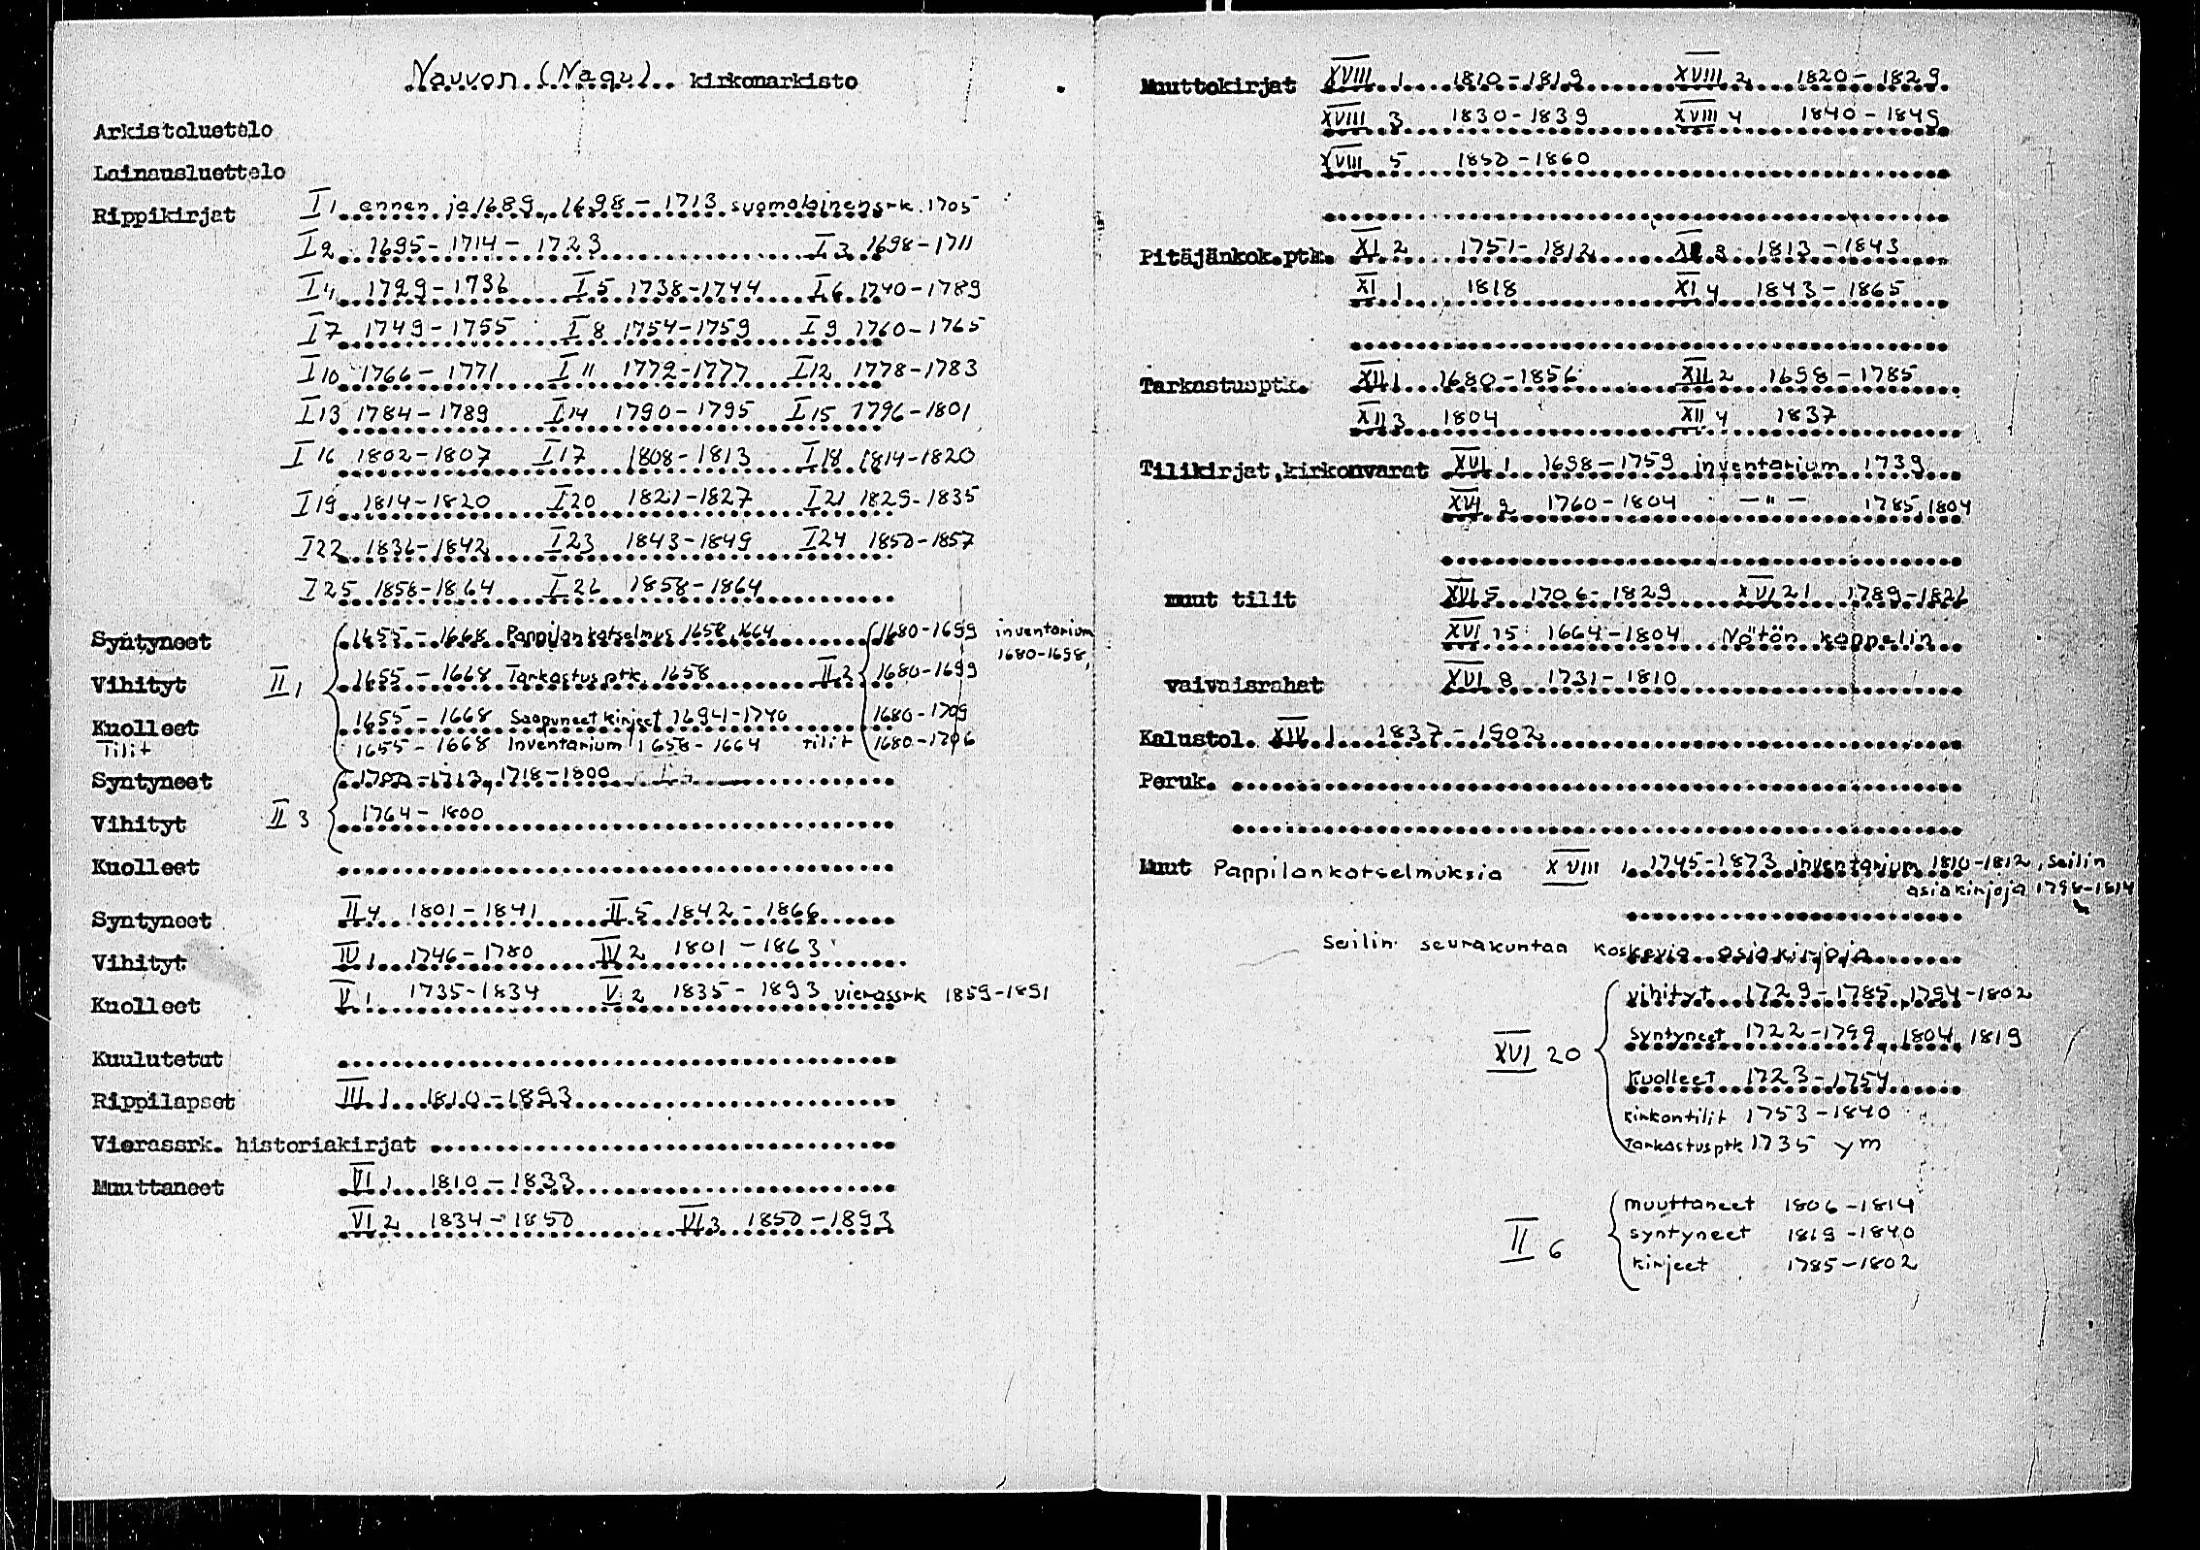 Nauvon (Nagu) kirkonarkisto
Arkistoluettelo
Lainausluettelo
Rippikirjat I 1 ennen ja 1689, 1698 - 1713 suomalainen srk. 1705
I 2 1695 - 1714 - 1723 I 3 1698 - 1711
I 4 1729 - 1736 I 5 1738 - 1744 I 6 1740 - 1789
I 7 1749 - 1755 I 8 1754 - 1759 I 9 1760 - 1765
I 10 1766 - 1771 I 11 1772 - 1777 I 12 1778 - 1783
I 13 1784 - 1789 I 14 1790 - 1795 I 15 1796 - 1801
I 16 1802 - 1807 I 17 1808 - 1813 I 18 1814 - 1820
I 19 1814 - 1820 I 20 1821 - 1827 I 21 1829 - 1835
I 22 1836 - 1842 I 23 1843 - 1849 I 24 1850 - 1857
I 25 1858 - 1864 I 26 1858 - 1864
Syntyneet 1655 - 1668 Pappilankatselmus 1658, 1664 1680 - 1699 inventarium
1680 - 1698,
Vihityt II 1 1655 - 1668 Tarkastusptk. 1658 II 2 1680 - 1699
Kuolleet 1655 - 1668 Saapuneet kirjeet 1694 - 1740 1680 - 1709
Tilit 1655 - 1668 Inventarium 1658 - 1664 tilit 1680 - 1706
Syntyneet 1713, 1718 - 1800
Vihityt II 3 1764 - 1800
Kuolleet
Syntyneet II 4 1801 - 1841 II 5 1842 - 1866
Vihityt IV 1 1746 - 1780 IV 2 1801 - 1863
Kuolleet V 1 1735 - 1834 V 2 1835 - 1893 vierassrk 1859 - 1891
Kuulutetut
Rippilapset III 1 1810 - 1893
Vierassrk. historiakirjat
Muuttaneet VI 1 1810 - 1833
VI 2 1834 - 1850 VI 3 1850 - 1893
Muuttokirjat XVIII 1 1810 - 1819 XVIII 2 1820 - 1829
XVIII 3 1830 - 1839 XVIII 4 1840 - 1849
XVIII 5 1850 - 1860
Pitäjänkok.ptk. XI 2 1751 - 1812 XI 3 1813 - 1843
XI 1 1818 XI 4 1843 - 1865
Tarkastusptk. XII 1 1680 - 1856 XII 2 1698 - 1785
XII 3 1804 XII 4 1837
Tilikirjat,kirkonvarat XVI 1 1698 - 1759 inventarium 1739
XVI 2 1760 - 1804 - " - 1785, 1804
muut tilit XVI 5 1706 - 1829 XVI 21 1789 - 1826
XVI 15 1664 - 1804 Nötön kappelin
vaivaisrahat XVI 8 1731 - 1810
Kalustol. XIV 1 1837 - 1902
Peruk.
Muut Pappilankatselmuksia XVIII 1 1745 - 1873 inventarium 1810 - 1812, Seilin
asiakirjoja 1798 - 1814
Seilin seurakuntaa koskevia asiakirjoja
vihityt 1729 - 1785, 1794 - 1802
XVI 20 syntyneet 1722 - 1799, 1804, 1819
kuolleet 1723 - 1754
kirkontilit 1753 - 1840
tarkastusptk 1735 ym
muuttaneet 1806 - 1814
II 6 syntyneet 1819 - 1840
kirjeet 1785 - 1802